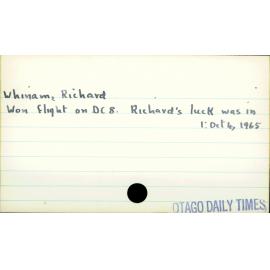 Whinam, Richard
Won flight on DC8. Richard's luck was in
1: Oct 4, 1965
OTAGO DAILY TIMES